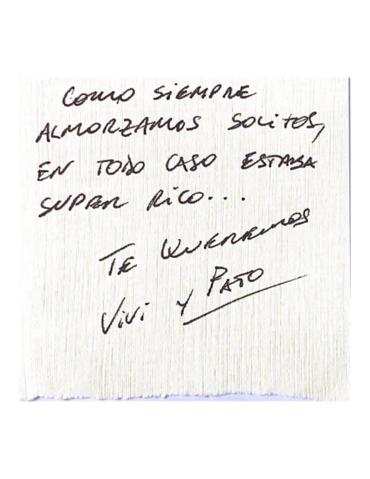 COMO SIEMPRE
ALMORZAMOS SOLITOS,
EN TODO CASO ESTABA
SUPER RICO...
TE QUEREMOS
VIVI Y PATO